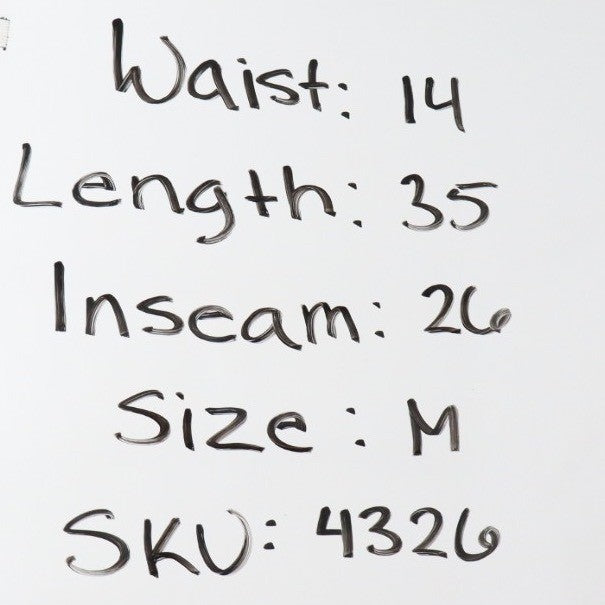 Waist: 14
Length: 35
Inseam: 26
Size: M
SKU: 4326